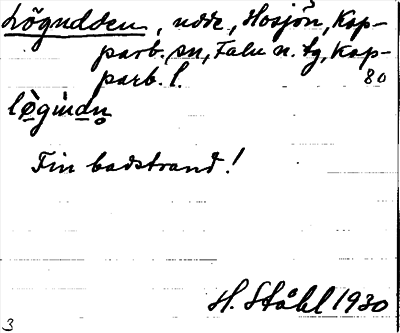 Lögudden, udde, Hosjön, Kop-
parb. sn, Falu n. tg, Kop-
parb. l. 80
Fin badstrand!
H. Ståhl 1930
3